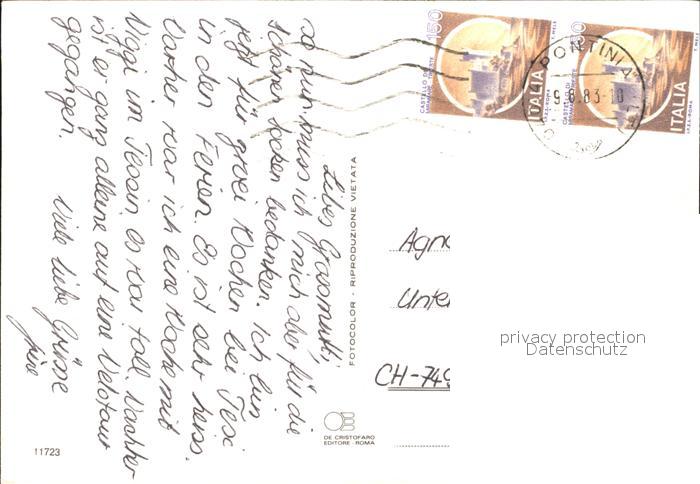 Liebes Grossmutti,
so nun muss ich mich aber für die
schönen Socken bedanken. Ich bin
jetzt für zwei Wochen bei Tesi
in den Ferien. Es ist sehr heiss.
Vorher war ich eine Woche mit
Viggi im Tessin es war toll. Nachher
ist er ganz alleine auf eine Velotour
gegangen.
Viele liebe Grüsse
FOTOCOLOR - RIPRODUZIONE VIETATA
150
CASTELLO DI
MIRAMARE TRIESTE
ITALIA
I.P.Z.S. ROMA
CASTELLO DI
ITALIA
I.P.Z.S. ROMA
PONTINIA
9.8.83-10
Agn
Unter
CH-749
privacy protection
Datenschutz
DE CRISTOFARO
EDITORE - ROMA
11723